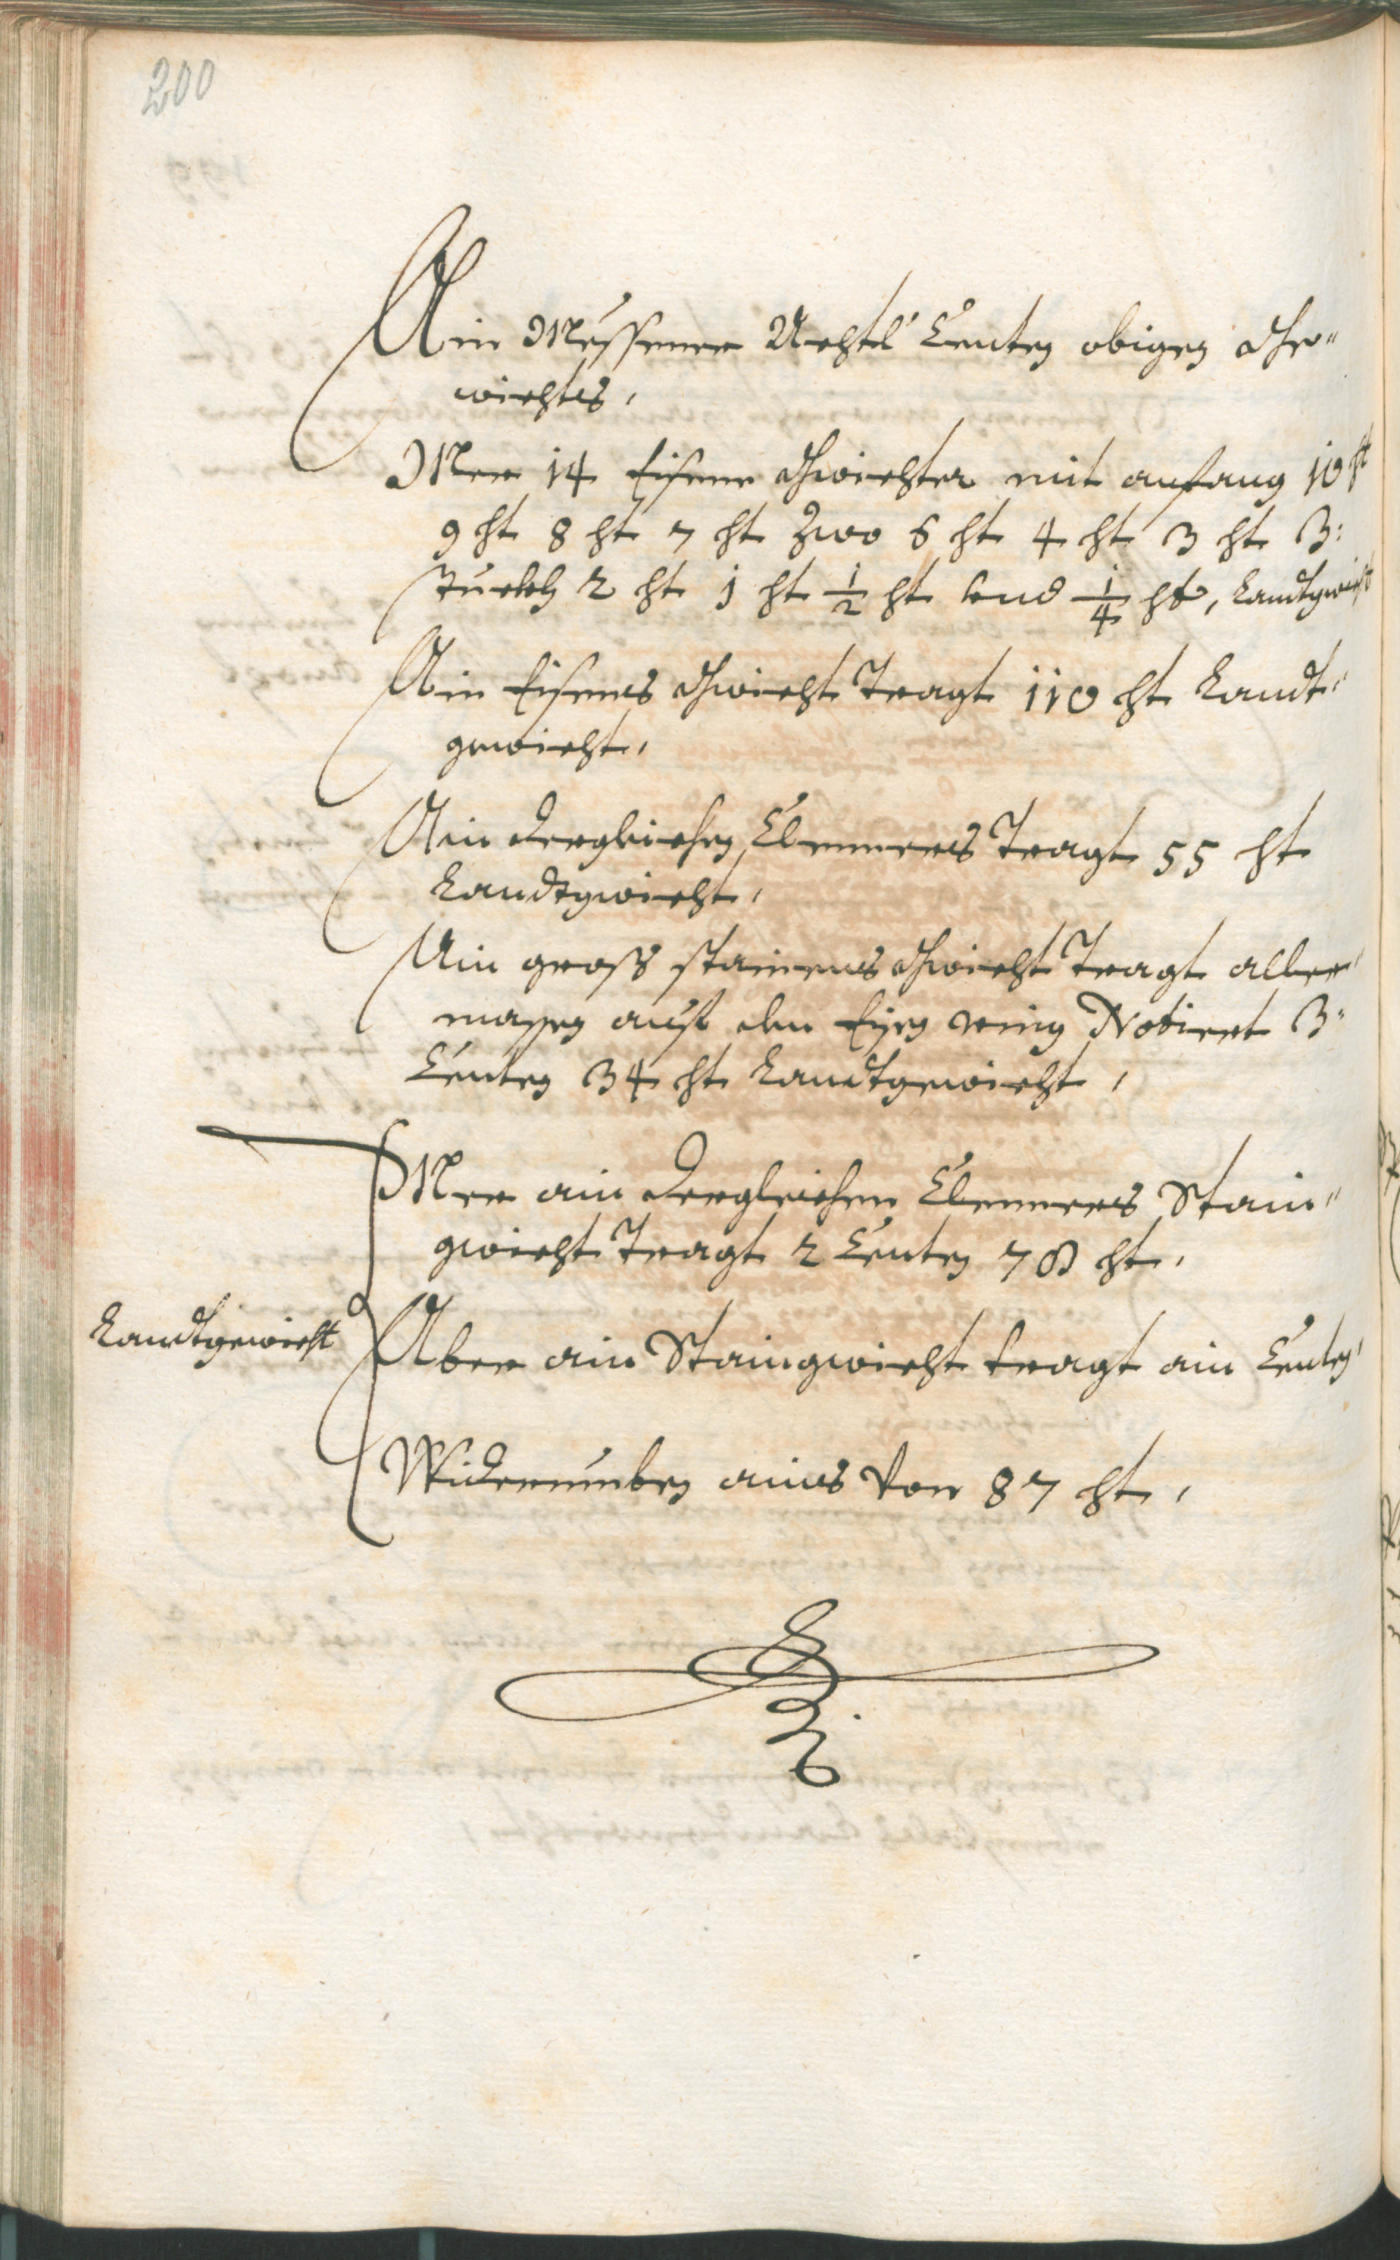 200
Ain Messener Achtl Centen obigen Ge-
wichts,
Mer 14 Eisene Gwichter mit anfang 10 ℔
9 ℔ 8 ℔ 7 ℔ Zwo 6 ℔ 4 ℔ 3 ℔ 3:
stuckh 2 ℔ 1 ℔ 1/2 ℔ vnd 1/4 ℔, Landtgwicht
Ain Eisenes Gwicht Tragt 110 ℔ Landt-
gewicht,
Ain dergleichen Clenners Tragt 55 ℔
Landtgwicht,
Ain gross stainenes Gwicht Tragt aller-
massen auf den Eysen ring Notiert 3:
Centen 34 ℔ Landtgewicht,
Mer ain dergleichen Clenners Stain-
gwicht Tragt 2 Centen 78 ℔,
Landtgewicht
Aber ain Staingwicht tragt ain Centen,
Widerumben aines von 87 ℔,